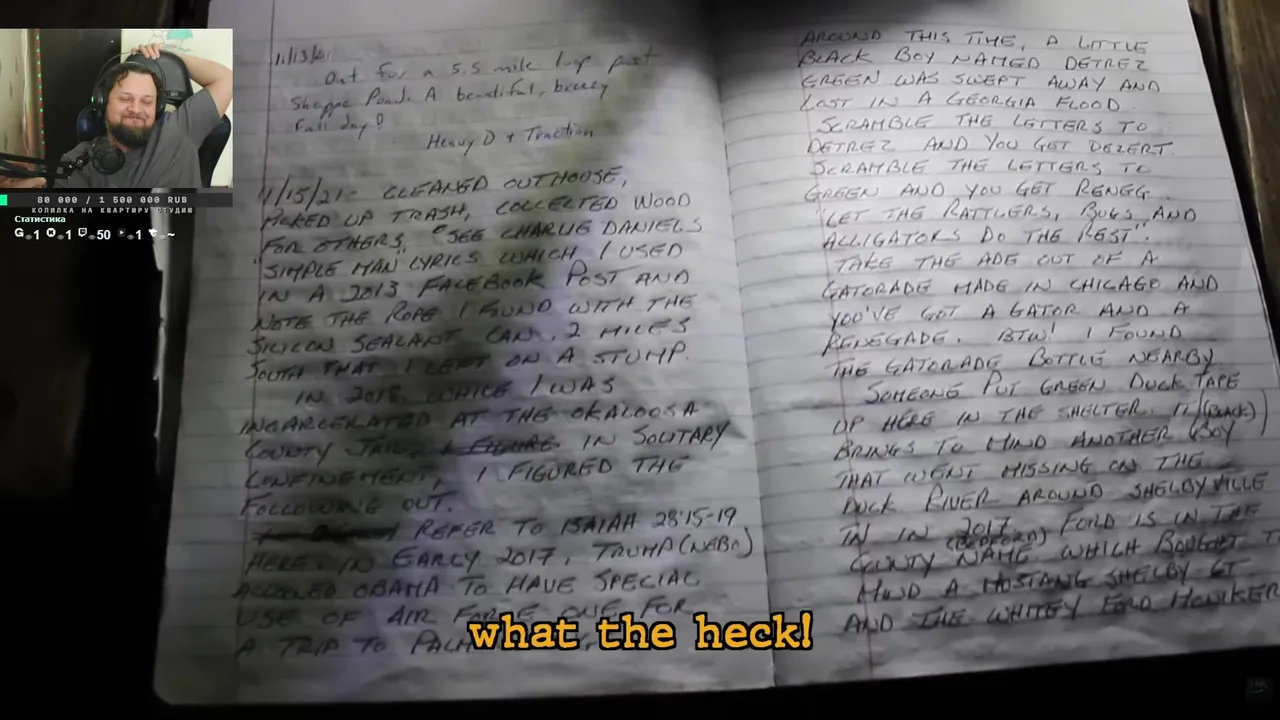 80 000 / 1 500 000 RUB
КОПИЛКА НА КВАРТИРУ СТУДИЮ
Статистика
1 1 50 1 ~
11/13/21
Out for a 5.5 mile loop past
Shoppe Pond. A beautiful, breezy
Fall day!
Heavy D + Traction
11/15/21- CLEANED OUTHOUSE,
PICKED UP TRASH, COLLECTED WOOD
FOR OTHERS. "SEE CHARLIE DANIELS
"SIMPLE MAN" LYRICS WHICH I USED
IN A 2013 FACEBOOK POST AND
NOTE THE ROPE I FOUND WITH THE
SILICON SEALANT CAN. 2 MILES
SOUTH THAT I LEFT ON A STUMP.
IN 2018, WHILE I WAS
INCARCERATED AT THE OKALOOSA
COUNTY JAIL, I FIGURE IN SOLITARY
CONFINEMENT, I FIGURED THE
FOLLOWING OUT.
REFER TO ISAIAH 28:15-19
HERE. IN EARLY 2017, TRUMP (NEBO)
ALLOWED OBAMA TO HAVE SPECIAL
USE OF AIR FORCE ONE FOR
A TRIP TO PALM
AROUND THIS TIME, A LITTLE
BLACK BOY NAMED DETREZ
GREEN WAS SWEPT AWAY AND
LOST IN A GEORGIA FLOOD.
SCRAMBLE THE LETTERS TO
DETREZ AND YOU GET DEZERT.
SCRAMBLE THE LETTERS TO
GREEN AND YOU GET RENEG.
"LET THE RATTLERS, BUGS AND
ALLIGATORS DO THE REST".
TAKE THE ADE OUT OF A
GATORADE MADE IN CHICAGO AND
YOU'VE GOT A GATOR AND A
RENEGADE. BTW! I FOUND
THE GATORADE BOTTLE NEARBY
SOMEONE PUT GREEN DUCK TAPE
UP HERE IN THE SHELTER. IT (BLACK)
BRINGS TO MIND ANOTHER BOY
THAT WENT MISSING ON THE
DUCK RIVER AROUND SHELBYVILLE
TN IN 2017. FORD IS IN THE
(BEDFORD)
COUNTY NAME WHICH BROUGHT T
MIND A MUSTANG SHELBY GT
AND THE WHITEY FORD
what the heck!